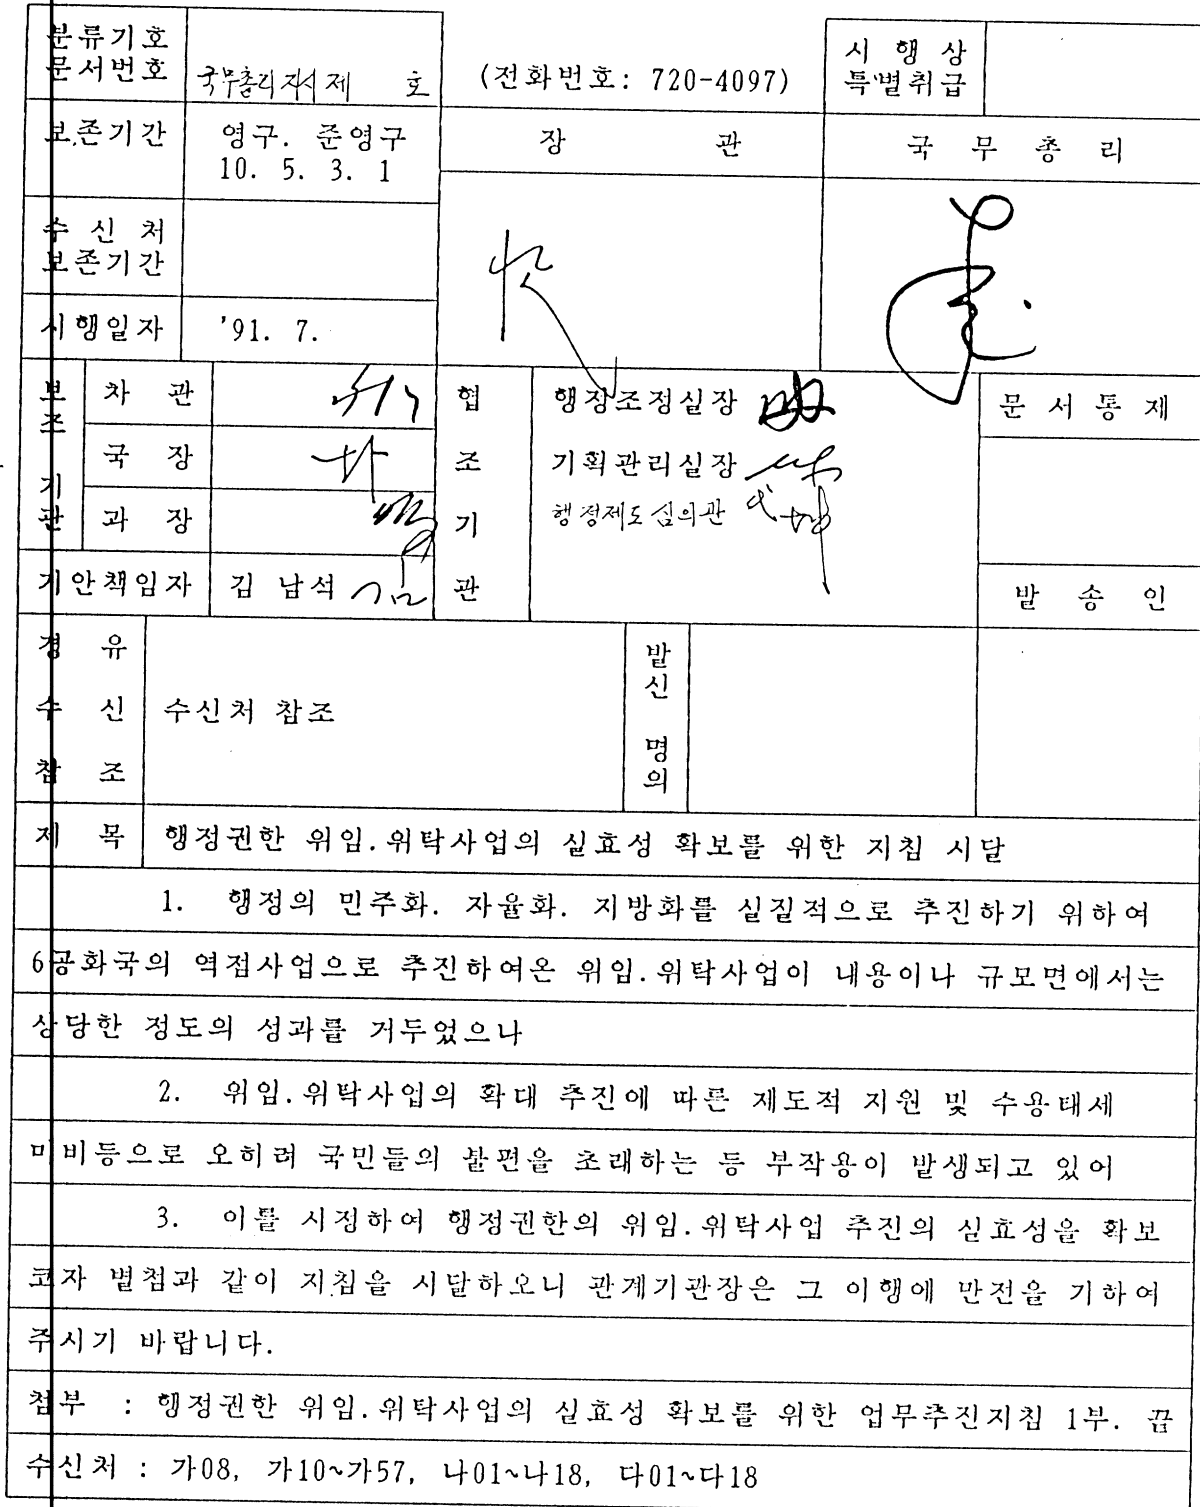 분류기호
문서번호
국무총리지시 제 호
(전화번호: 720-4097)
시 행 상
특별취급
보존기간
영구. 준영구
10. 5. 3. 1
장 관
국 무 총 리
수 신 처
보존기간
시행일자
'91. 7.
보조기관
차 관
국 장
과 장
협조기관
행정조정실장
기획관리실장
행정제도심의관
문 서 통 제
기안책임자
김 남석
발 송 인
경 유
수 신
참 조
수신처 참조
발신 명의
제 목
행정권한 위임.위탁사업의 실효성 확보를 위한 지침 시달
1. 행정의 민주화. 자율화. 지방화를 실질적으로 추진하기 위하여
6공화국의 역점사업으로 추진하여온 위임.위탁사업이 내용이나 규모면에서는
상당한 정도의 성과를 거두었으나
2. 위임.위탁사업의 확대 추진에 따른 제도적 지원 및 수용태세
미비등으로 오히려 국민들의 불편을 초래하는 등 부작용이 발생되고 있어
3. 이를 시정하여 행정권한의 위임.위탁사업 추진의 실효성을 확보
코자 별첨과 같이 지침을 시달하오니 관계기관장은 그 이행에 만전을 기하여
주시기 바랍니다.
첨부 : 행정권한 위임.위탁사업의 실효성 확보를 위한 업무추진지침 1부. 끝
수신처 : 가08, 가10~가57, 나01~나18, 다01~다18